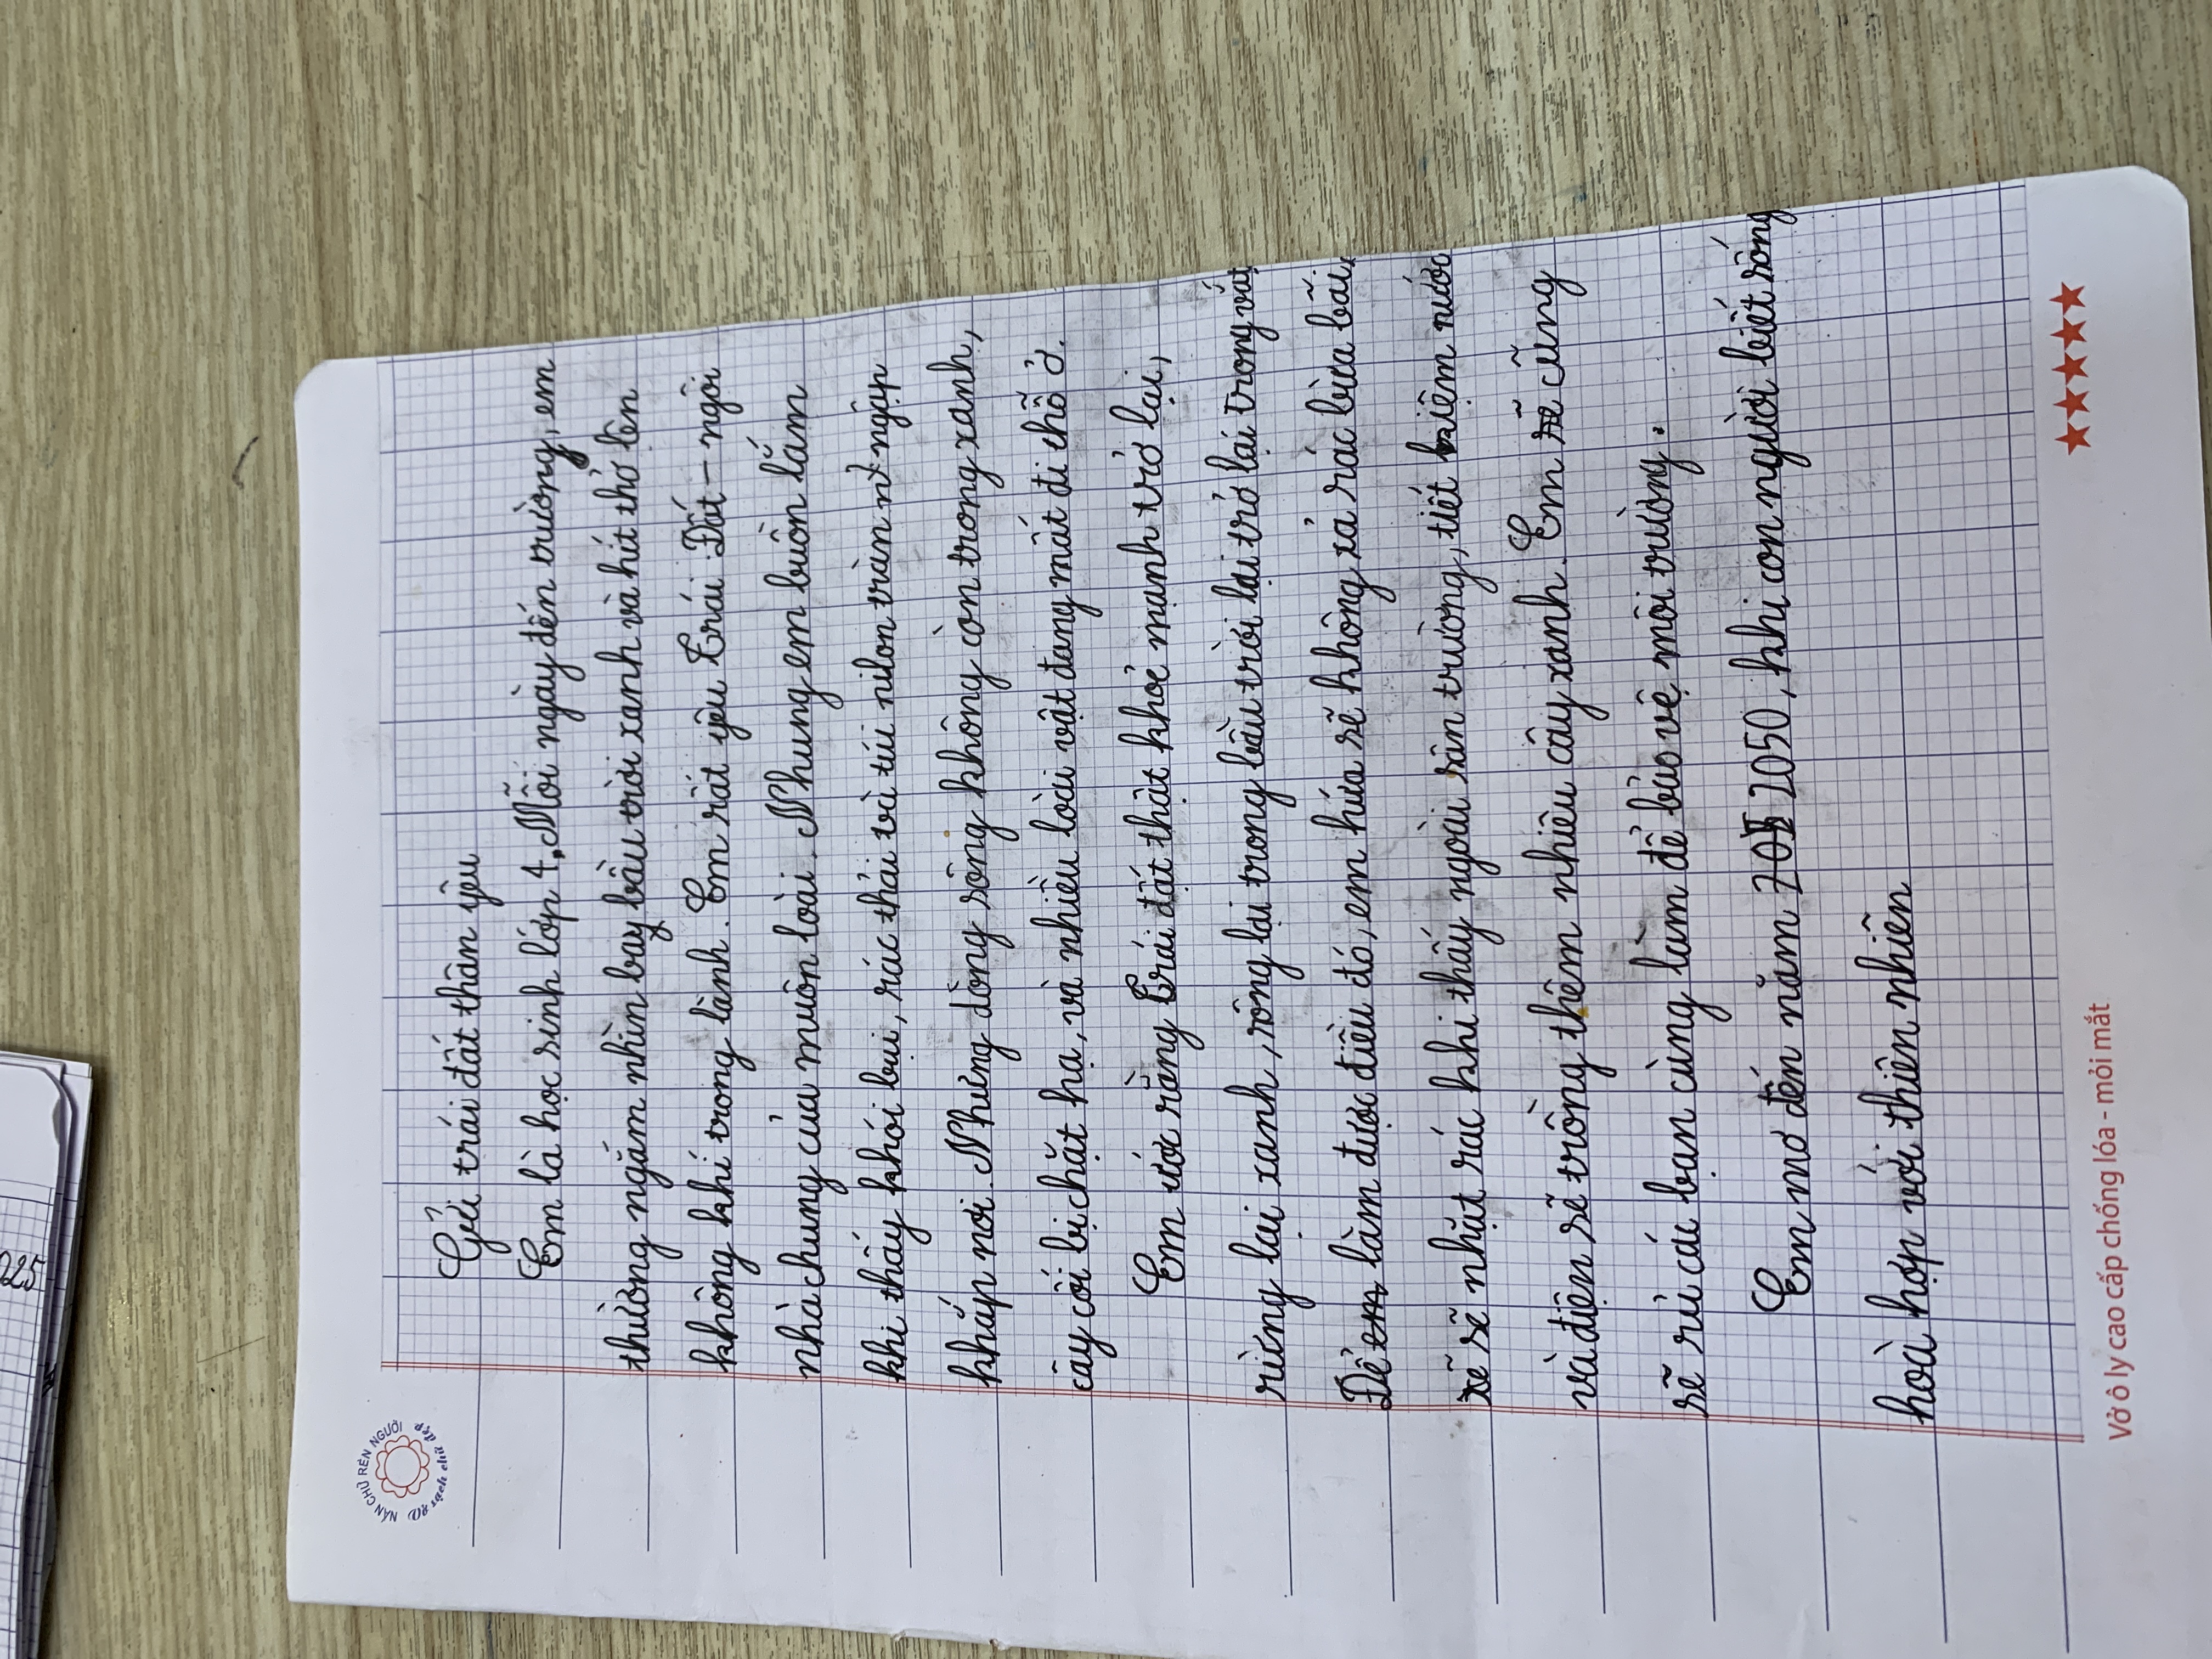 025
NẮN CHỮ RÈN NGƯỜI
Vở sạch chữ đẹp
Gửi trái đất thân yêu
Em là học sinh lớp 4. Mỗi ngày đến trường, em
thường ngắm nhìn bay bầu trời xanh và hít thở lên
không khí trong lành. Em rất yêu Trái Đất - ngôi
nhà chung của muôn loài. Nhung em buồn lắm
khi thấy khói bụi, rác thải và túi nilon tràn ngập
khắp nơi. Những dòng sông không còn trong xanh,
cây cối bị chặt hạ, và nhiều loài vật đang mất đi chỗ ở.
Em ước rằng Trái đất thật khoẻ mạnh trở lại,
rừng lại xanh, sông lại trong bầu trời lại trở lại trong vắt
Để em làm được điều đó, em hứa sẽ không xả rác bừa bãi,
sẽ sẽ nhặt rác khi thấy ngoài sân trường, tiết kiệm nước
và điện sẽ trồng thêm nhiều cây xanh. Em sẽ cũng
sẽ rủ các bạn cùng làm để bảo vệ môi trường.
Em mơ đến năm 205 2050, khi con người biết sống
hoà hợp với thiên nhiên
Vở ô ly cao cấp chống lóa - mỏi mắt